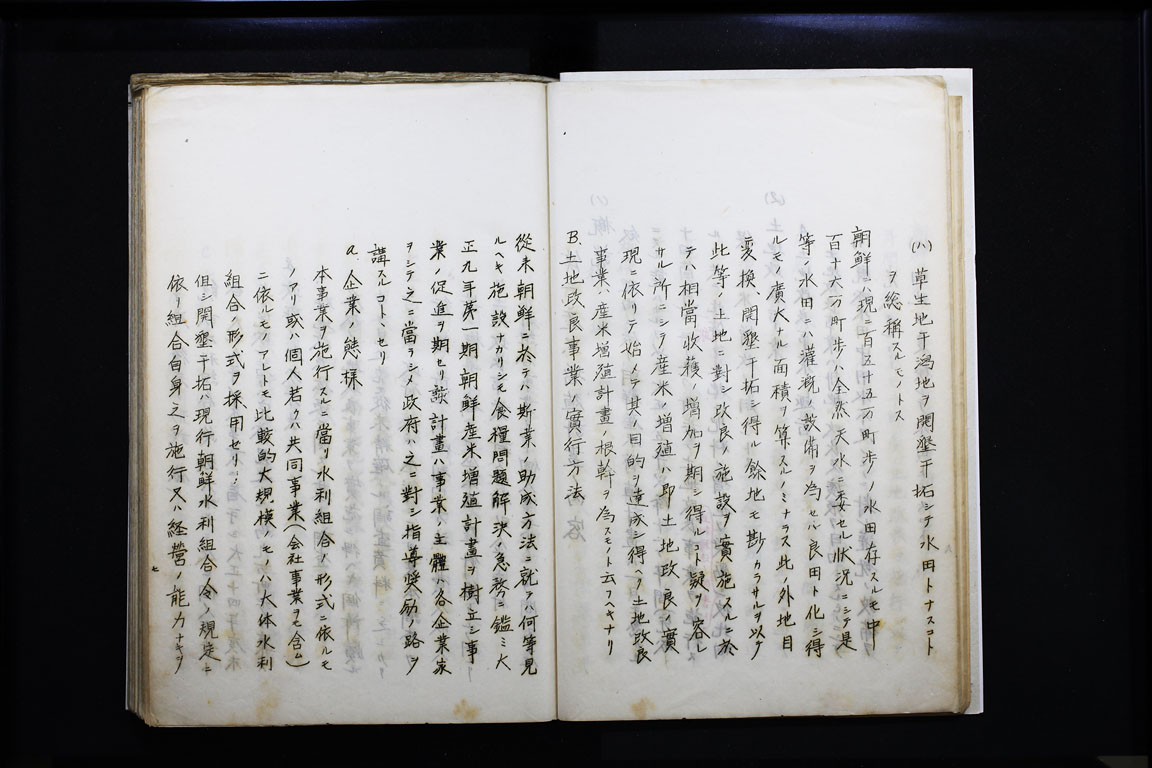 (ハ) 草生地干潟地ヲ開墾干拓シテ水田トナスコト
ヲ総稱スルモノトス
朝鮮ニハ現ニ百五十五万町歩ノ水田存スルモ中
百十六万町歩ハ全然天水ニ委セル状況ニシテ是
等ノ水田ニハ灌漑ノ設備ヲ為セバ良田ト化シ得
ルモノ廣大ナル面積ヲ算スルノミナラス此ノ外地目
変換、開墾干拓シ得ル餘地モ尠カラサルヲ以テ
此等ノ土地ニ對シ改良ノ施設ヲ實施スルニ於
テハ相當收穫ノ増加ヲ期シ得ルコト疑ヲ容レ
サル所ニシテ産米ノ増殖ハ即土地改良ノ實
現ニ依リテ始メテ其ノ目的ヲ達成シ得ヘク土地改良
事業ハ産米増殖計畫ノ根幹ヲ為スモノト云フヘキナリ
B. 土地改良事業ノ實行方法
從来朝鮮ニ於テハ斯業ノ助成方法ニ就テハ何等見
ルヘキ施設ナカリシモ食糧問題解決ノ急務ニ鑑ミ大
正九年第一期朝鮮産米増殖計畫ヲ樹立シ事
業ノ促進ヲ期セリ該計畫ハ事業ノ主體ハ各企業家
ヲシテ之ニ當ラシメ政府ハ之ニ對シ指導奨励ノ路ヲ
講スルコトヽセリ
a. 企業ノ態様
本事業ヲ施行スルニ當リ水利組合ノ形式ニ依ルモ
ノアリ或ハ個人若クハ共同事業(会社事業ヲモ含ム)
ニ依ルモノアレトモ比較的大規模ノモノハ大体水利
組合ノ形式ヲ採用セリ
但シ開墾干拓ハ現行朝鮮水利組合令ノ規定ニ
依リ組合自身之ヲ施行又ハ経営ノ能力ナキヲ
七